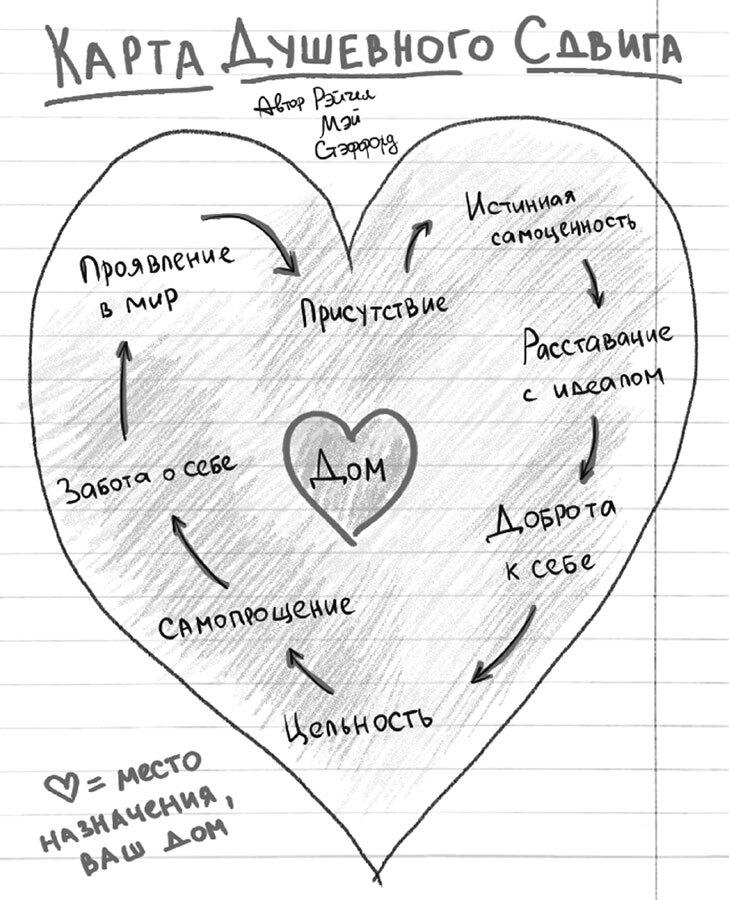 Карта Душевного Сдвига
Автор Рэйчел
Мэй
Стэффорд
Истинная
самоценность
Проявление
в мир
Присутствие
Расставание
с идеалом
Дом
Забота о себе
Доброта
к себе
Самопрощение
Цельность
♡ = место
назначения,
ваш дом